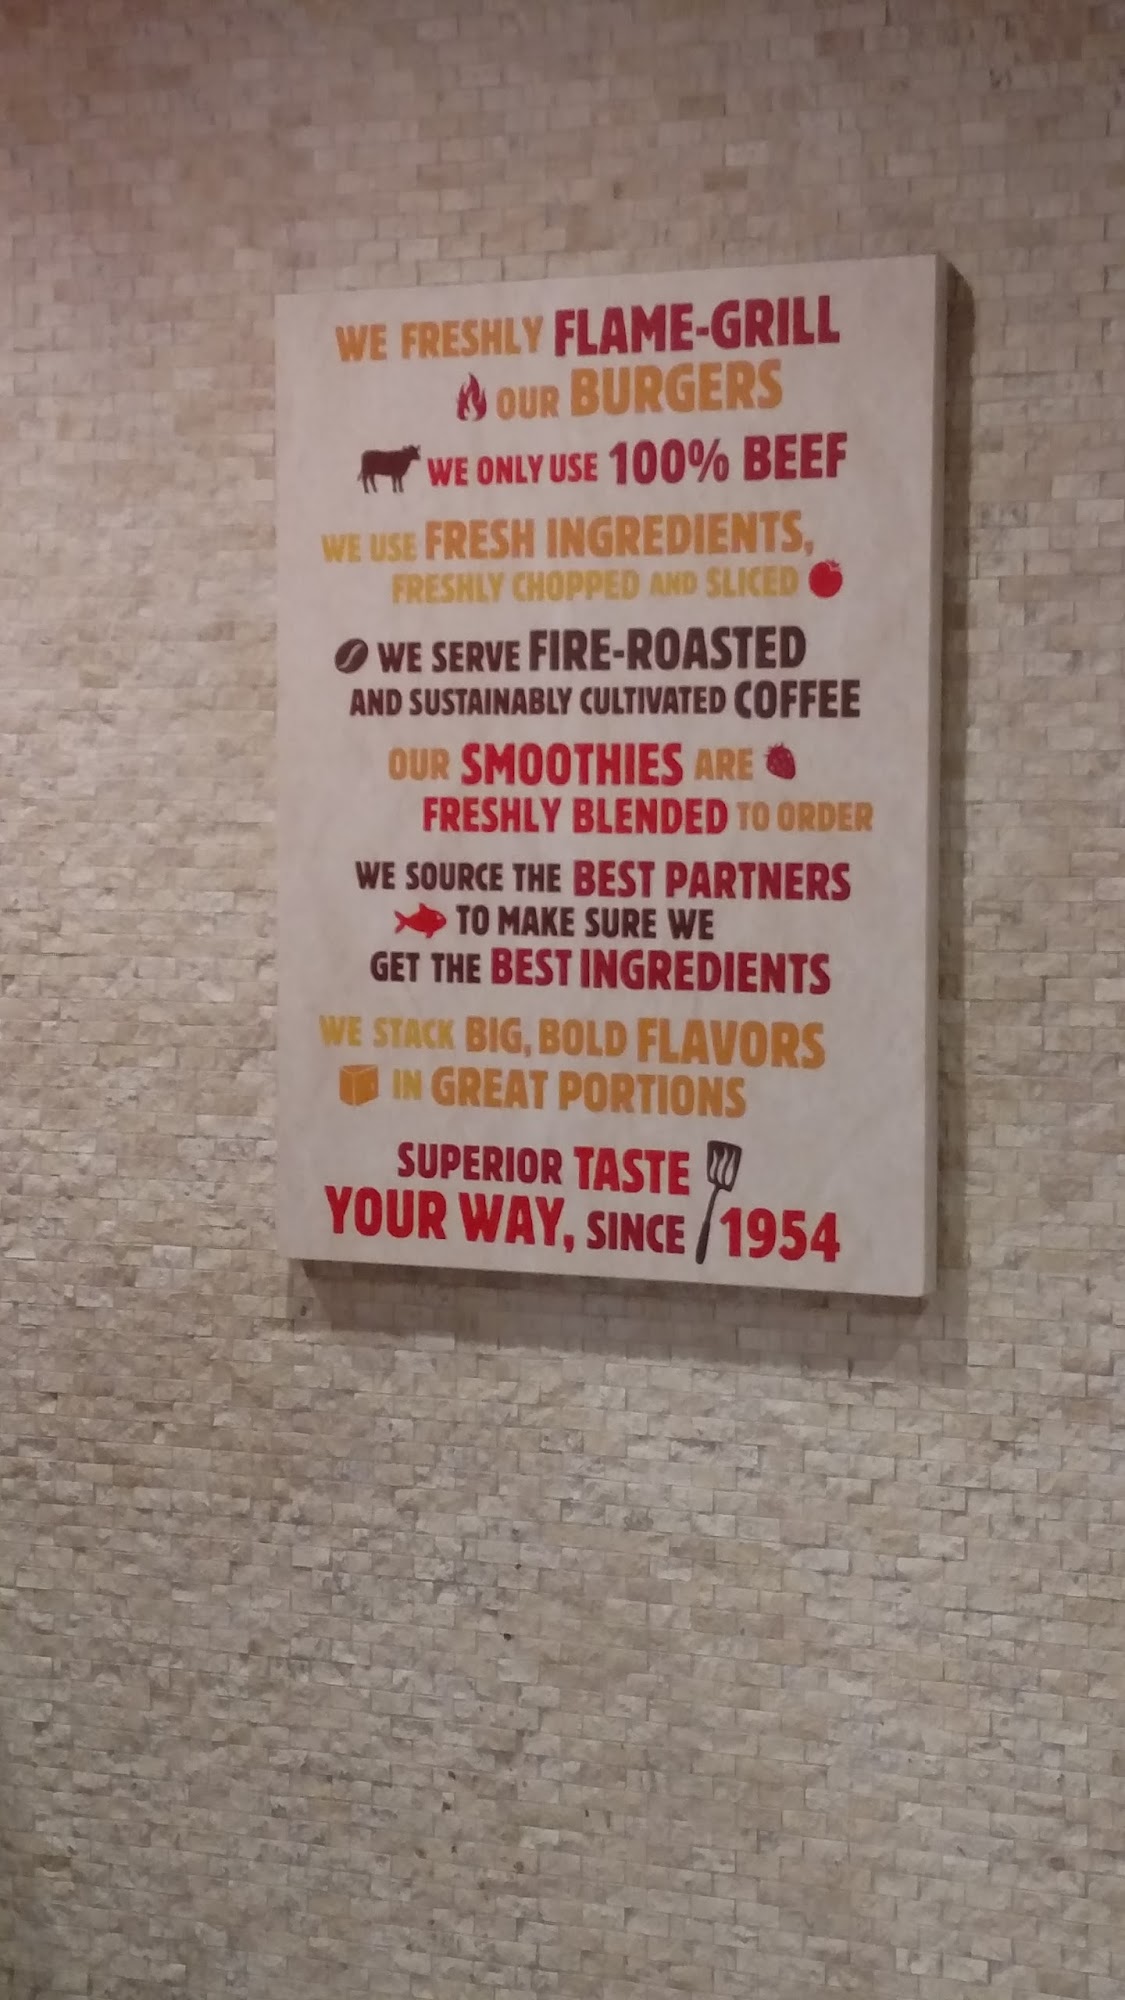 WE FRESHLY FLAME-GRILL
OUR BURGERS
WE ONLY USE 100% BEEF
WE USE FRESH INGREDIENTS,
FRESHLY CHOPPED AND SLICED
WE SERVE FIRE-ROASTED
AND SUSTAINABLY CULTIVATED COFFEE
OUR SMOOTHIES ARE
FRESHLY BLENDED TO ORDER
WE SOURCE THE BEST PARTNERS
TO MAKE SURE WE
GET THE BEST INGREDIENTS
WE STACK BIG, BOLD FLAVORS
IN GREAT PORTIONS
SUPERIOR TASTE
YOUR WAY, SINCE 1954